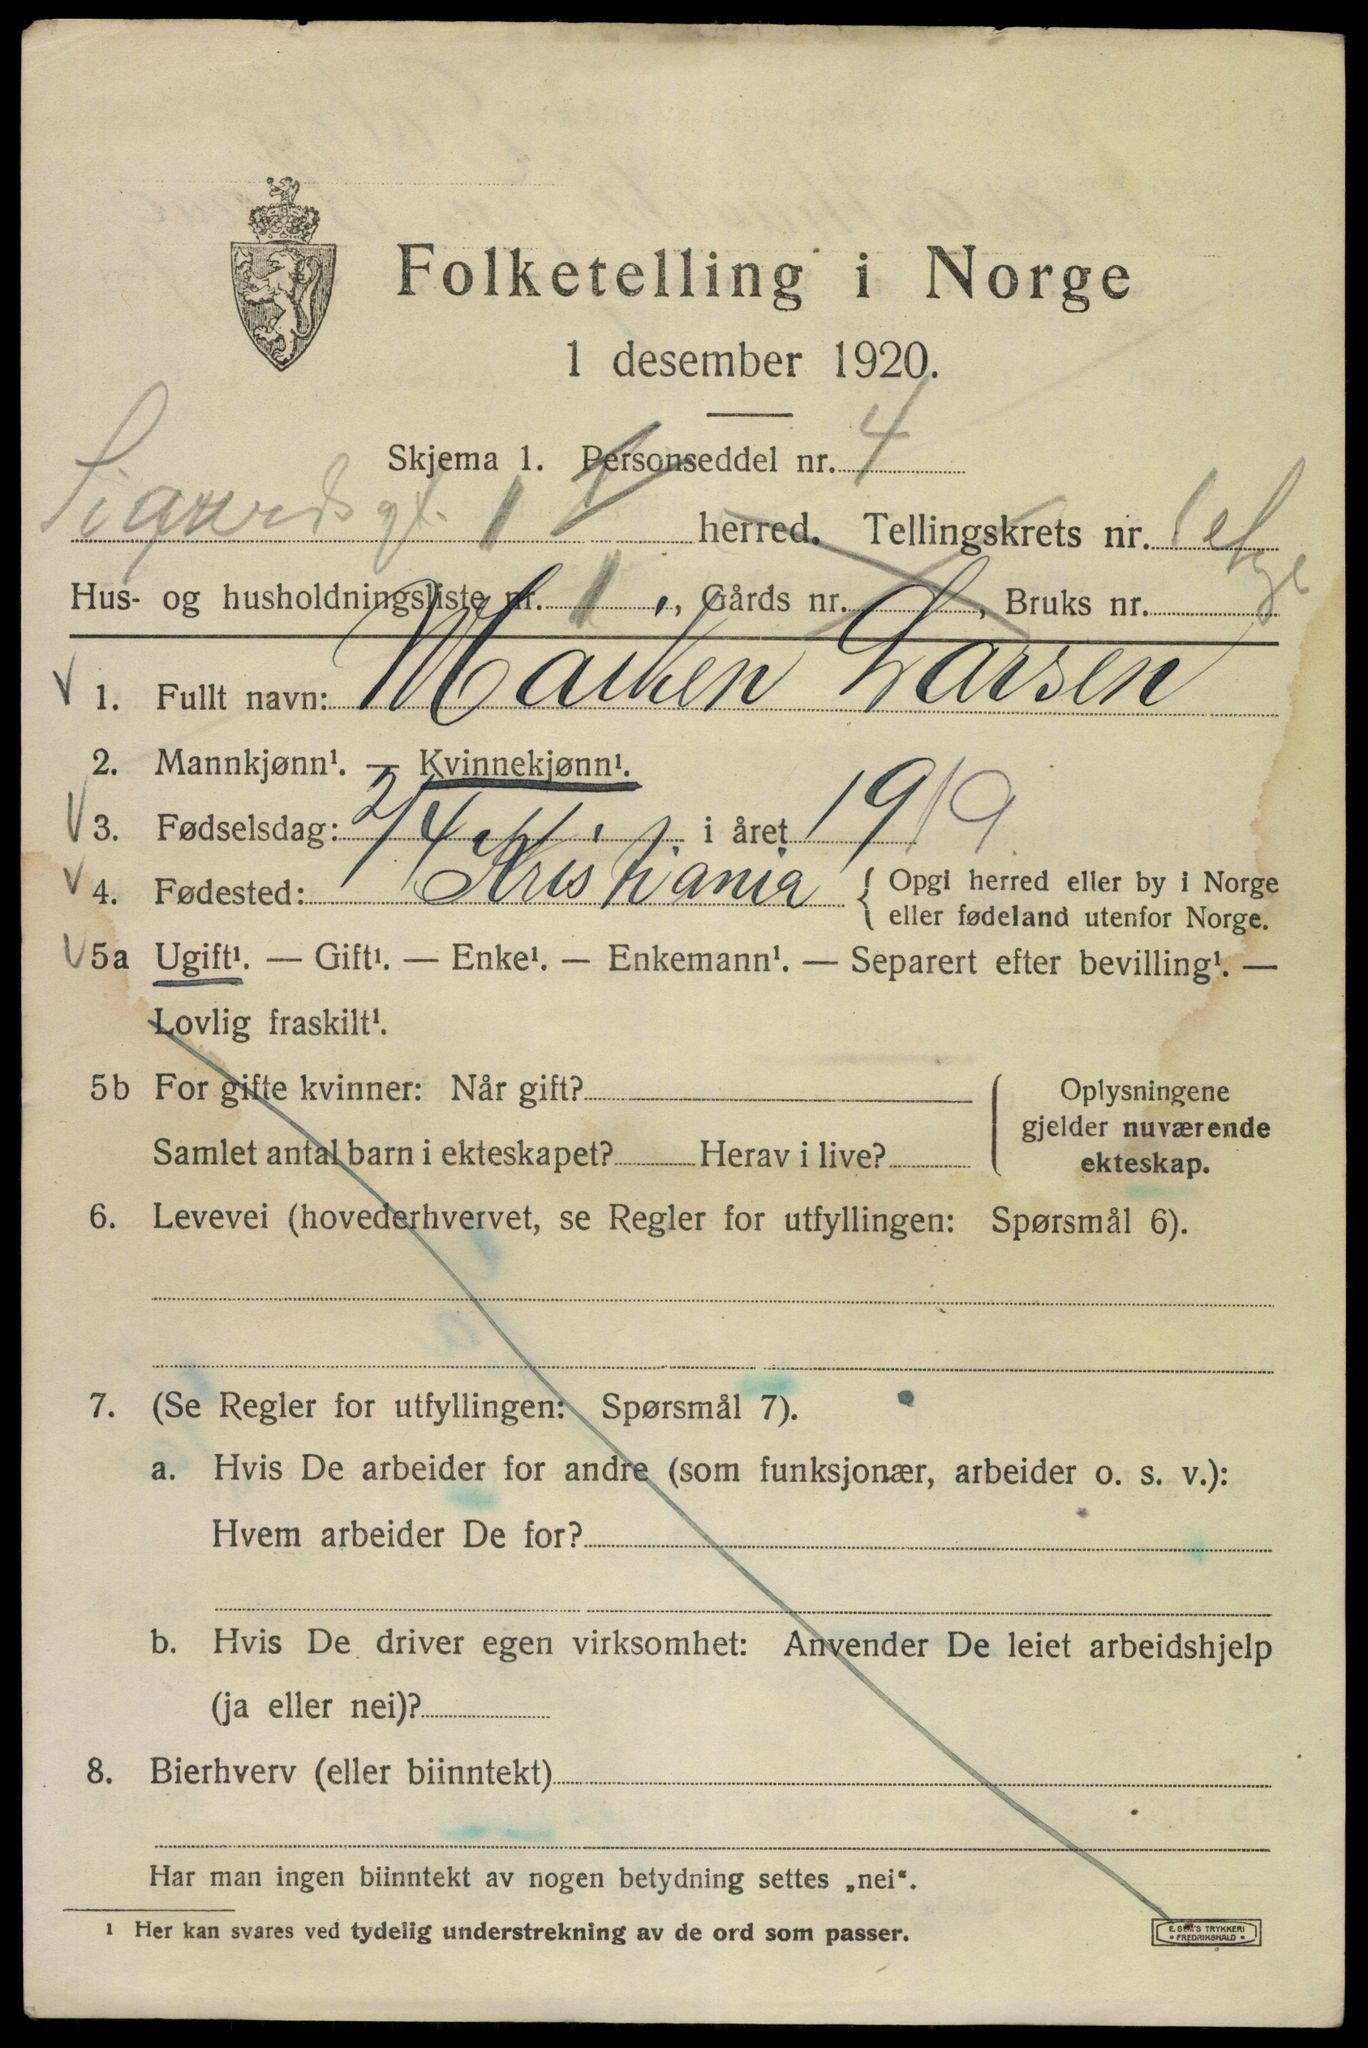 Folketelling i Norge
1 desember 1920.
Skjema 1. Personseddel nr. 4
Sigurdsgt. 1 herred. Tellingskrets nr. 1 etg
Hus- og husholdningsliste nr. 1, Gårds nr. , Bruks nr.
1. Fullt navn: Maiken Larsen
2. Mannkjønn¹. — Kvinnekjønn¹.
3. Fødselsdag: 2/4 i året 1919
4. Fødested: Kristiania { Opgi herred eller by i Norge
eller fødeland utenfor Norge.
5a Ugift¹. — Gift¹. — Enke¹. — Enkemann¹. — Separert efter bevilling¹. —
Lovlig fraskilt¹.
5b For gifte kvinner: Når gift?
Samlet antal barn i ekteskapet? Herav i live?
Oplysningene
gjelder nuværende
ekteskap.
6. Levevei (hovederhvervet, se Regler for utfyllingen: Spørsmål 6).
7. (Se Regler for utfyllingen: Spørsmål 7).
a. Hvis De arbeider for andre (som funksjonær, arbeider o. s. v.):
Hvem arbeider De for?
b. Hvis De driver egen virksomhet: Anvender De leiet arbeidshjelp
(ja eller nei)?
8. Bierhverv (eller biinntekt)
Har man ingen biinntekt av nogen betydning settes „nei“.
1 Her kan svares ved tydelig understrekning av de ord som passer.
E. SEM'S TRYKKERI
FREDRIKSHALD